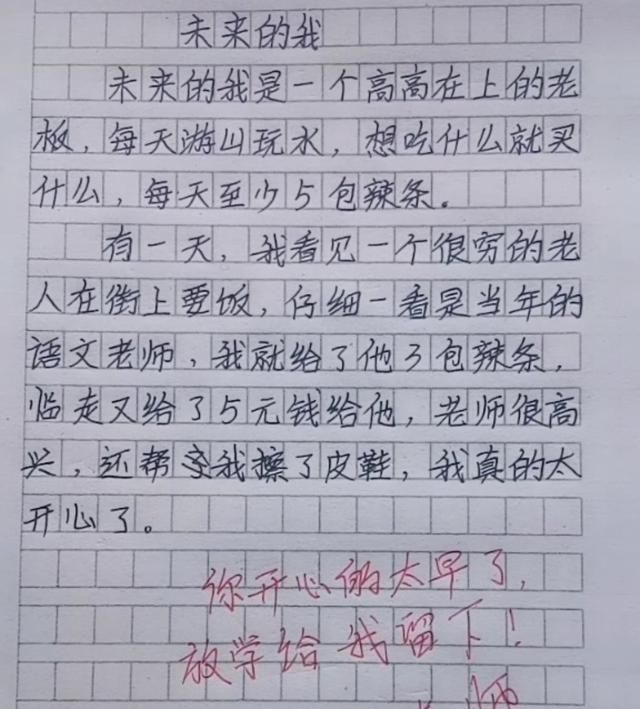 未来的我
未来的我是一个高高在上的老
板，每天游山玩水，想吃什么就买
什么，每天至少5包辣条。
有一天，我看见一个很穷的老
人在街上要饭，仔细一看是当年的
语文老师，我就给了他3包辣条，
临走又给了5元钱给他，老师很高
兴，还帮我擦了皮鞋，我真的太
开心了。
你开心的太早了，
放学给我留下！
师